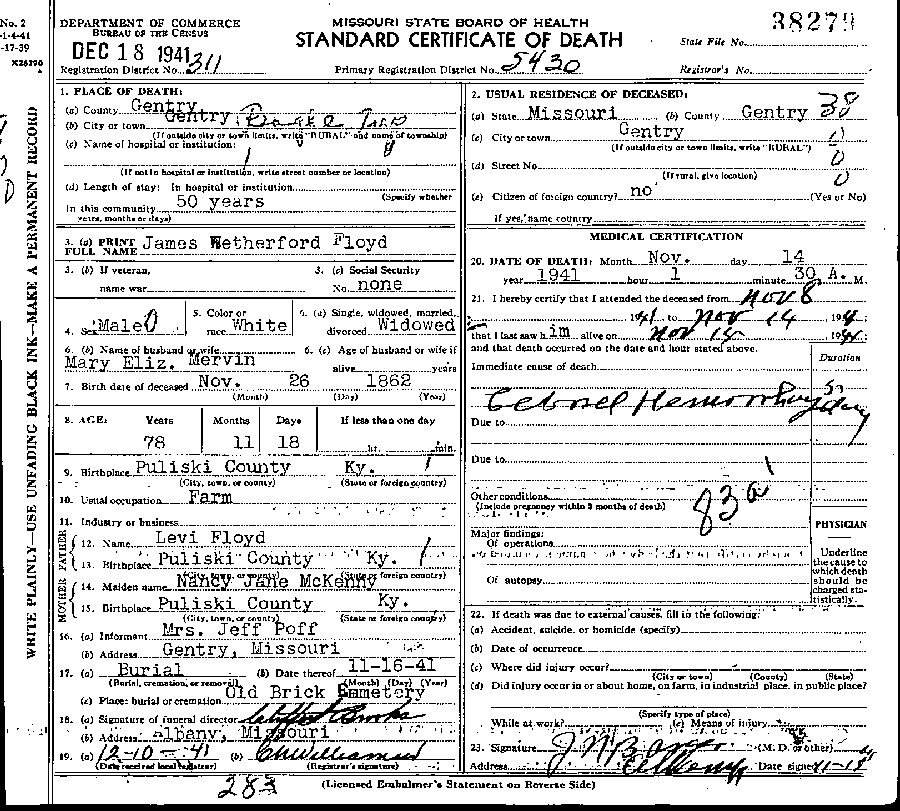 No. 2
1-4-41
-17-39
X26390
WRITE PLAINLY—USE UNFADING BLACK INK—MAKE A PERMANENT RECORD
DEPARTMENT OF COMMERCE
BUREAU OF THE CENSUS
DEC 18 1941
Registration District No. 311
MISSOURI STATE BOARD OF HEALTH
STANDARD CERTIFICATE OF DEATH
Primary Registration District No. 5430
38279
State File No.
Registrar's No.
1. PLACE OF DEATH:
(a) County Gentry
(b) City or town Gentry
(If outside city or town limits, write "RURAL" and name of township)
(c) Name of hospital or institution:
(If not in hospital or institution, write street number or location)
(d) Length of stay: In hospital or institution
(Specify whether
In this community 50 years
years, months or days)
3. (a) PRINT FULL NAME James Wetherford Floyd
3. (b) If veteran,
name war
3. (c) Social Security
No. none
4. Sex Male
5. Color or
race White
6. (a) Single, widowed, married,
divorced Widowed
6. (b) Name of husband or wife
Mary Eliz. Mervin
6. (c) Age of husband or wife if
alive years
7. Birth date of deceased Nov. 26 1862
(Month) (Day) (Year)
8. AGE: Years Months Days If less than one day
78 11 18 hr. min.
9. Birthplace Puliski County Ky.
(City, town, or county) (State or foreign country)
10. Usual occupation Farm
11. Industry or business
FATHER
12. Name Levi Floyd
13. Birthplace Puliski County Ky.
(City, town, or county) (State or foreign country)
MOTHER
14. Maiden name Nancy Jane McKenny
15. Birthplace Puliski County Ky.
(City, town, or county) (State or foreign country)
16. (a) Informant Mrs. Jeff Poff
(b) Address Gentry, Missouri
17. (a) Burial (b) Date thereof 11-16-41
(Burial, cremation, or removal) (Month) (Day) (Year)
(c) Place: burial or cremation Old Brick Cemetery
18. (a) Signature of funeral director Clifford Brooks
(b) Address Albany, Missouri
19. (a) 12-10-41 (b) C W Williams
(Date received local registrar) (Registrar's signature)
2. USUAL RESIDENCE OF DECEASED:
(a) State Missouri (b) County Gentry 38
(c) City or town Gentry
(If outside city or town limits, write "RURAL")
(d) Street No. 0
(If rural, give location) 0
(e) Citizen of foreign country? no (Yes or No)
If yes, name country
MEDICAL CERTIFICATION
20. DATE OF DEATH: Month Nov. day 14
year 1941 hour 1 minute 30 A. M.
21. I hereby certify that I attended the deceased from Nov 8
1941 to Nov 14 1941
that I last saw him alive on Nov 14 1941
and that death occurred on the date and hour stated above.
Duration
Immediate cause of death
Cebrael Hemorrhay 5 day
Due to
Due to
Other conditions
(Include pregnancy within 3 months of death)
83a
Major findings:
Of operations
Of autopsy
PHYSICIAN
Underline
the cause to
which death
should be
charged sta-
tistically.
22. If death was due to external causes, fill in the following:
(a) Accident, suicide, or homicide (specify)
(b) Date of occurrence
(c) Where did injury occur?
(City or town) (County) (State)
(d) Did injury occur in or about home, on farm, in industrial place, in public place?
(Specify type of place)
While at work? (e) Means of injury
23. Signature (M. D. or other)
Address Albany Date signed
283
(Licensed Embalmer's Statement on Reverse Side)